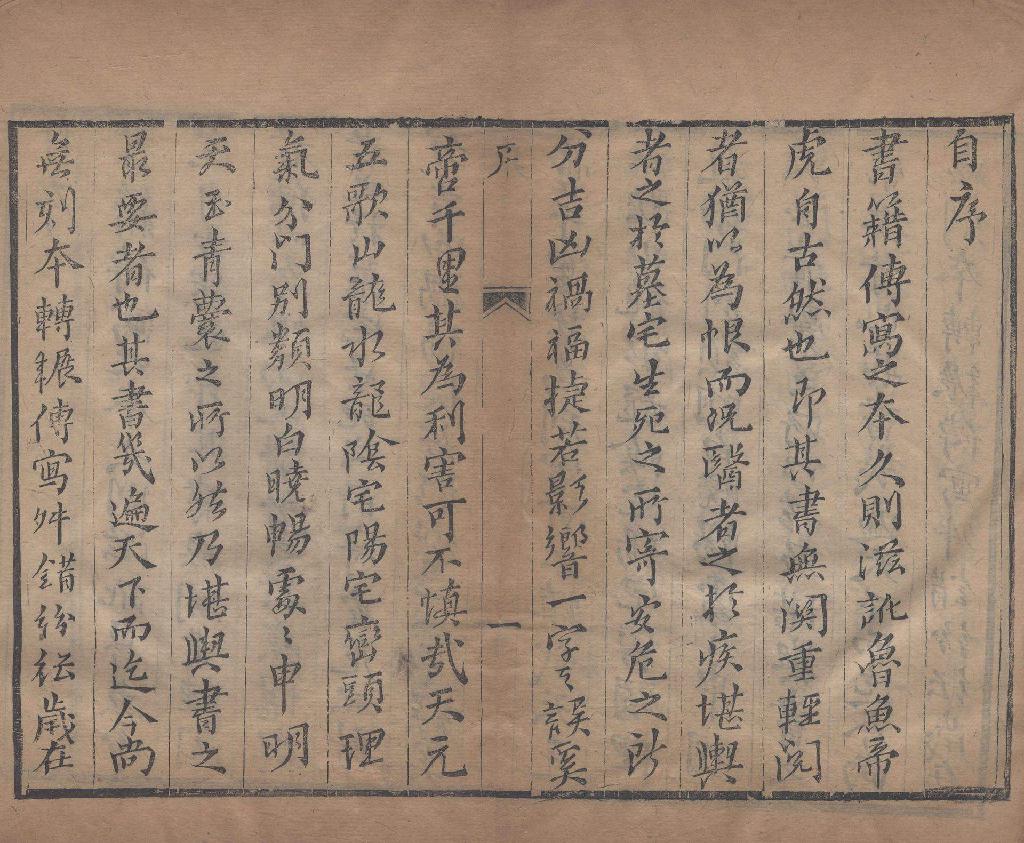 自序
書籍傳寫之本久則滋訛魯魚帝
虎自古然也即其書無関重輕閱
者猶以為恨而况醫者之於疾堪輿
者之於墓宅生死之所寄安危之所
分吉凶禍福捷若影響一字之誤奚
序
一
啻千里其為利害可不慎哉天元
五歌山龍水龍陰宅陽宅巒頭理
氣分門別類明白曉暢處〻申明
天玉青囊之所以然乃堪輿書之
最要者也其書幾遍天下而迄今尚
無刻本轉輾傳寫舛錯紛紜歲在